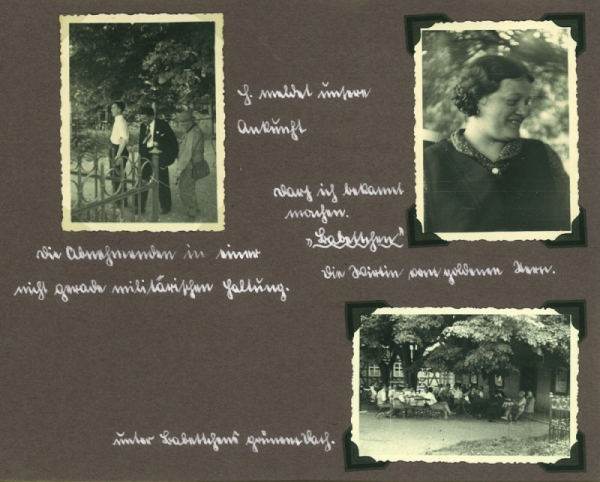 H. meldet unsere
Ankunft
Darf ich bekannt
machen.
"Babettchen"
Die Wirtin vom goldenen Stern.
Die Abnehmenden in einer
nicht gerade militärischen Haltung.
unter Babettchens grünem Dach.